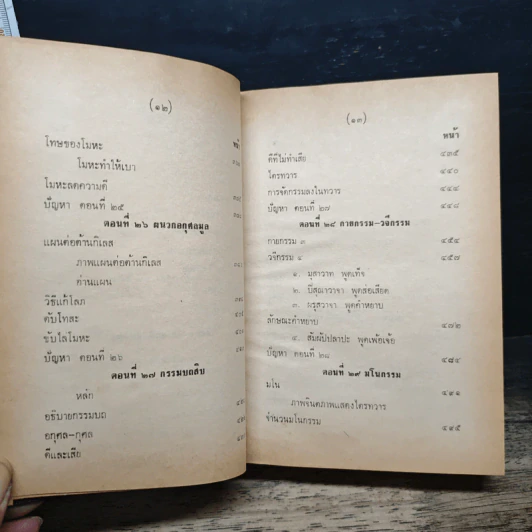 (๑๒)
หน้า
โทษของโมหะ
โมหะทำให้เบา
โมหะลดความดี
ปัญหา ตอนที่ ๒๕
ตอนที่ ๒๖ ผนวกอกุศลมูล
แผนต่อต้านกิเลส
ภาพแผนต่อต้านกิเลส
อ่านแผน
วิธีแก้โลภ
ดับโทสะ
ขับไล่โมหะ
ปัญหา ตอนที่ ๒๖
ตอนที่ ๒๗ กรรมบถสิบ
หลัก
อธิบายกรรมบถ
อกุศล-กุศล
ดีและเสีย
(๑๓)
หน้า
ดีที่ไม่ทำเสีย ๔๓๕
ไตรทวาร ๔๔๐
การจัดกรรมลงในทวาร ๔๔๔
ปัญหา ตอนที่ ๒๗ ๔๔๘
ตอนที่ ๒๘ กายกรรม-วจีกรรม
กายกรรม ๓ ๔๕๔
วจีกรรม ๔ ๔๕๗
๑. มุสาวาท พูดเท็จ
๒. ปิสุณาวาจา พูดส่อเสียด
๓. ผรุสวาจา พูดคำหยาบ
ลักษณะคำหยาบ ๔๗๒
๔. สัมผัปปลาปะ พูดเพ้อเจ้อ
ปัญหา ตอนที่ ๒๘ ๔๘๔
ตอนที่ ๒๙ มโนกรรม
มโน ๔๙๑
ภาพจินตภาพแสดงไตรทวาร
จำนวนมโนกรรม ๔๙๕